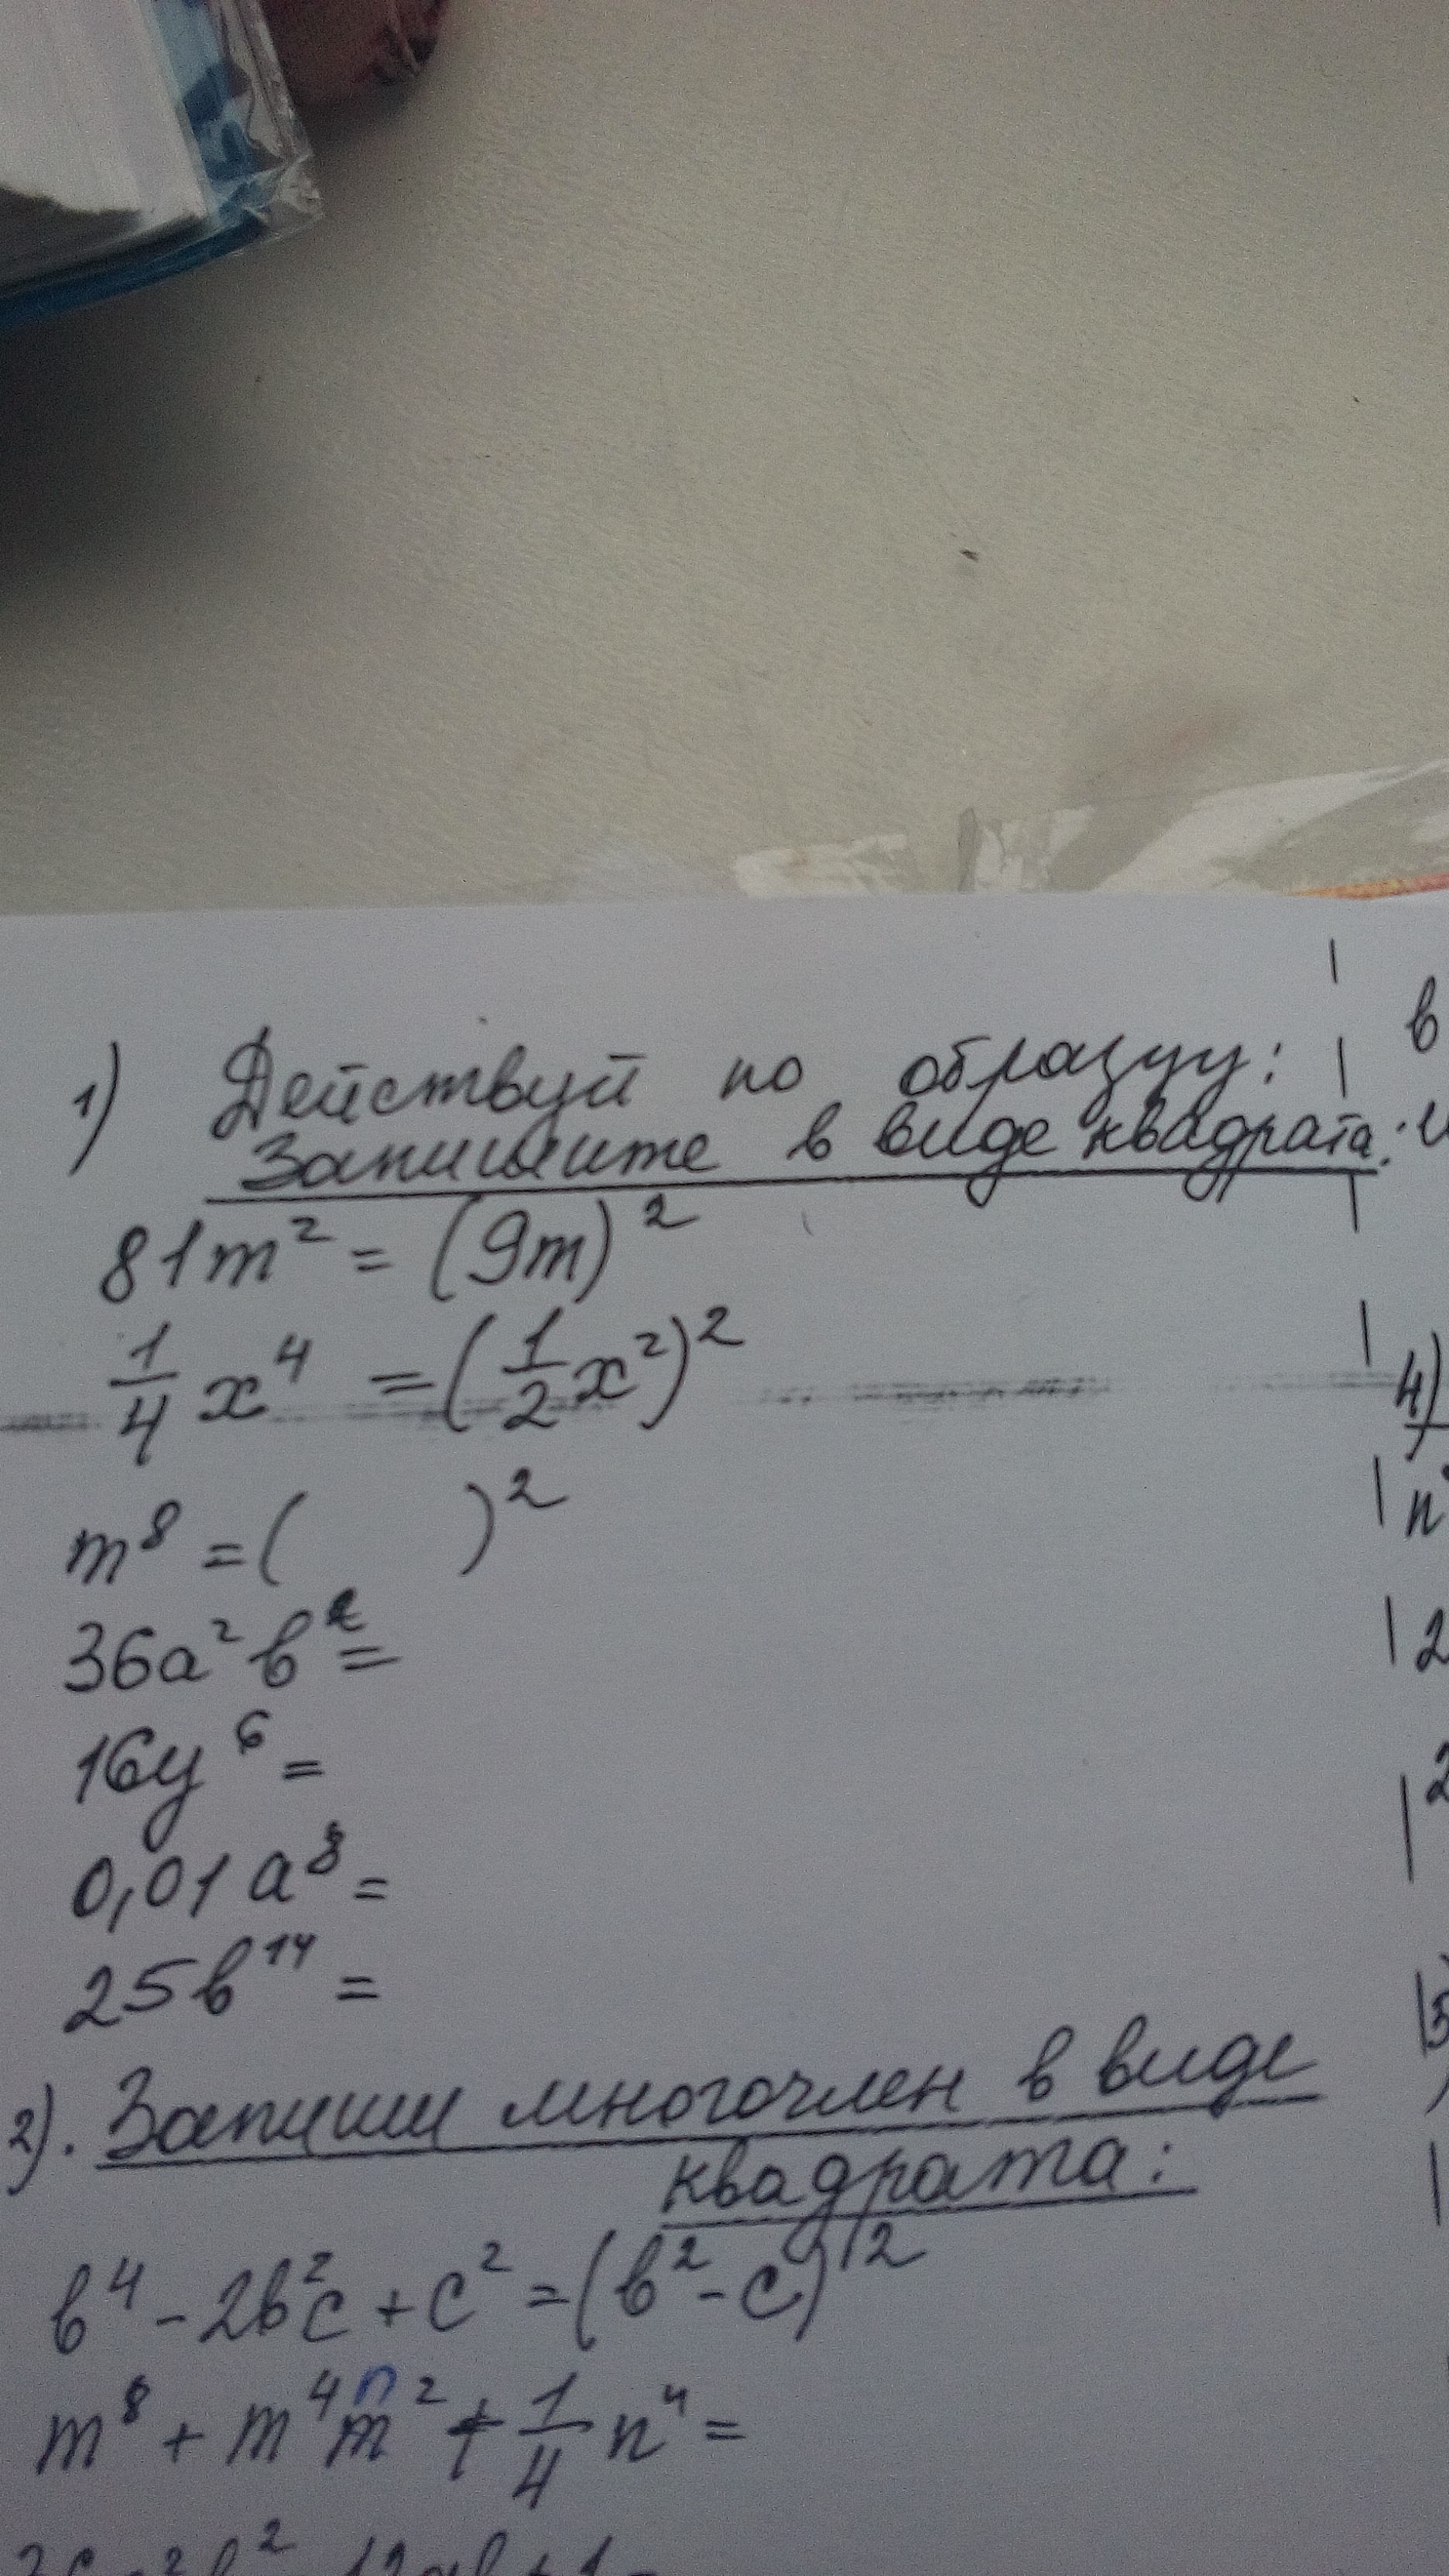 1) Действуй по образцу:
Запишите в виде квадрата:
81m² = (9m)²
1/4 x⁴ = (1/2 x²)²
m⁸ = ( )²
36a²b² =
16y⁶ =
0,01a⁸ =
25b¹⁴ =
2). Запиши многочлен в виде
квадрата:
b⁴ - 2b²c + c² = (b² - c)²
m⁸ + m⁴n² + 1/4 n⁴ =
36a²b² - 12ab + 1 =
в
4)
n
2
2